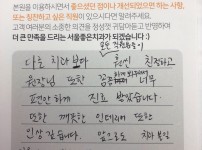 본원을 이용하시면서 좋으셨던 점이나 개선되었으면 하는 사항,
또는 칭찬하고 싶은 직원이 있으시다면 말려주세요.
고객 여러분의 소중한 의견을 정성껏 귀담아듣고 반영하여
더 큰 만족을 드리는 서울좋은치과가 되겠습니다 :)
모든 직원분들이
다른 치과보다 훨씬 친절하고
원장님 또한 꼼꼼하게 봐주셔서 너무
편안하게 진료 받았습니다.
또한 깨끗한 인테리어 또한
인상 깊습니다.